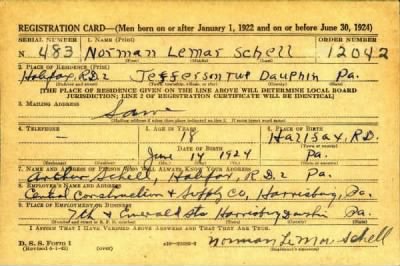 REGISTRATION CARD—(Men born on or after January 1, 1922 and on or before June 30, 1924)
SERIAL NUMBER 1. NAME (Print) ORDER NUMBER
N 483 Norman Lemar Schell 12042
2. PLACE OF RESIDENCE (Print)
Halifax, R.D. 2 Jefferson Twp Dauphin Pa.
[THE PLACE OF RESIDENCE GIVEN ON THE LINE ABOVE WILL DETERMINE LOCAL BOARD
JURISDICTION; LINE 2 OF REGISTRATION CERTIFICATE WILL BE IDENTICAL]
3. MAILING ADDRESS
Same
4. TELEPHONE 5. AGE IN YEARS 6. PLACE OF BIRTH
— 18 Halifax, R.D.
DATE OF BIRTH
June 14 1924 Pa.
7. NAME AND ADDRESS OF PERSON WHO WILL ALWAYS KNOW YOUR ADDRESS
Arthur Schell, Halifax, R.D. 2 Pa.
8. EMPLOYER'S NAME AND ADDRESS
Central Construction & Supply Co, Harrisburg, Pa.
9. PLACE OF EMPLOYMENT OR BUSINESS
7th & Emerald Sts Harrisburg Dauphin Pa.
I AFFIRM THAT I HAVE VERIFIED ABOVE ANSWERS AND THAT THEY ARE TRUE.
D. S. S. Form 1
(Revised 6-1-42)
Norman LeMar Schell